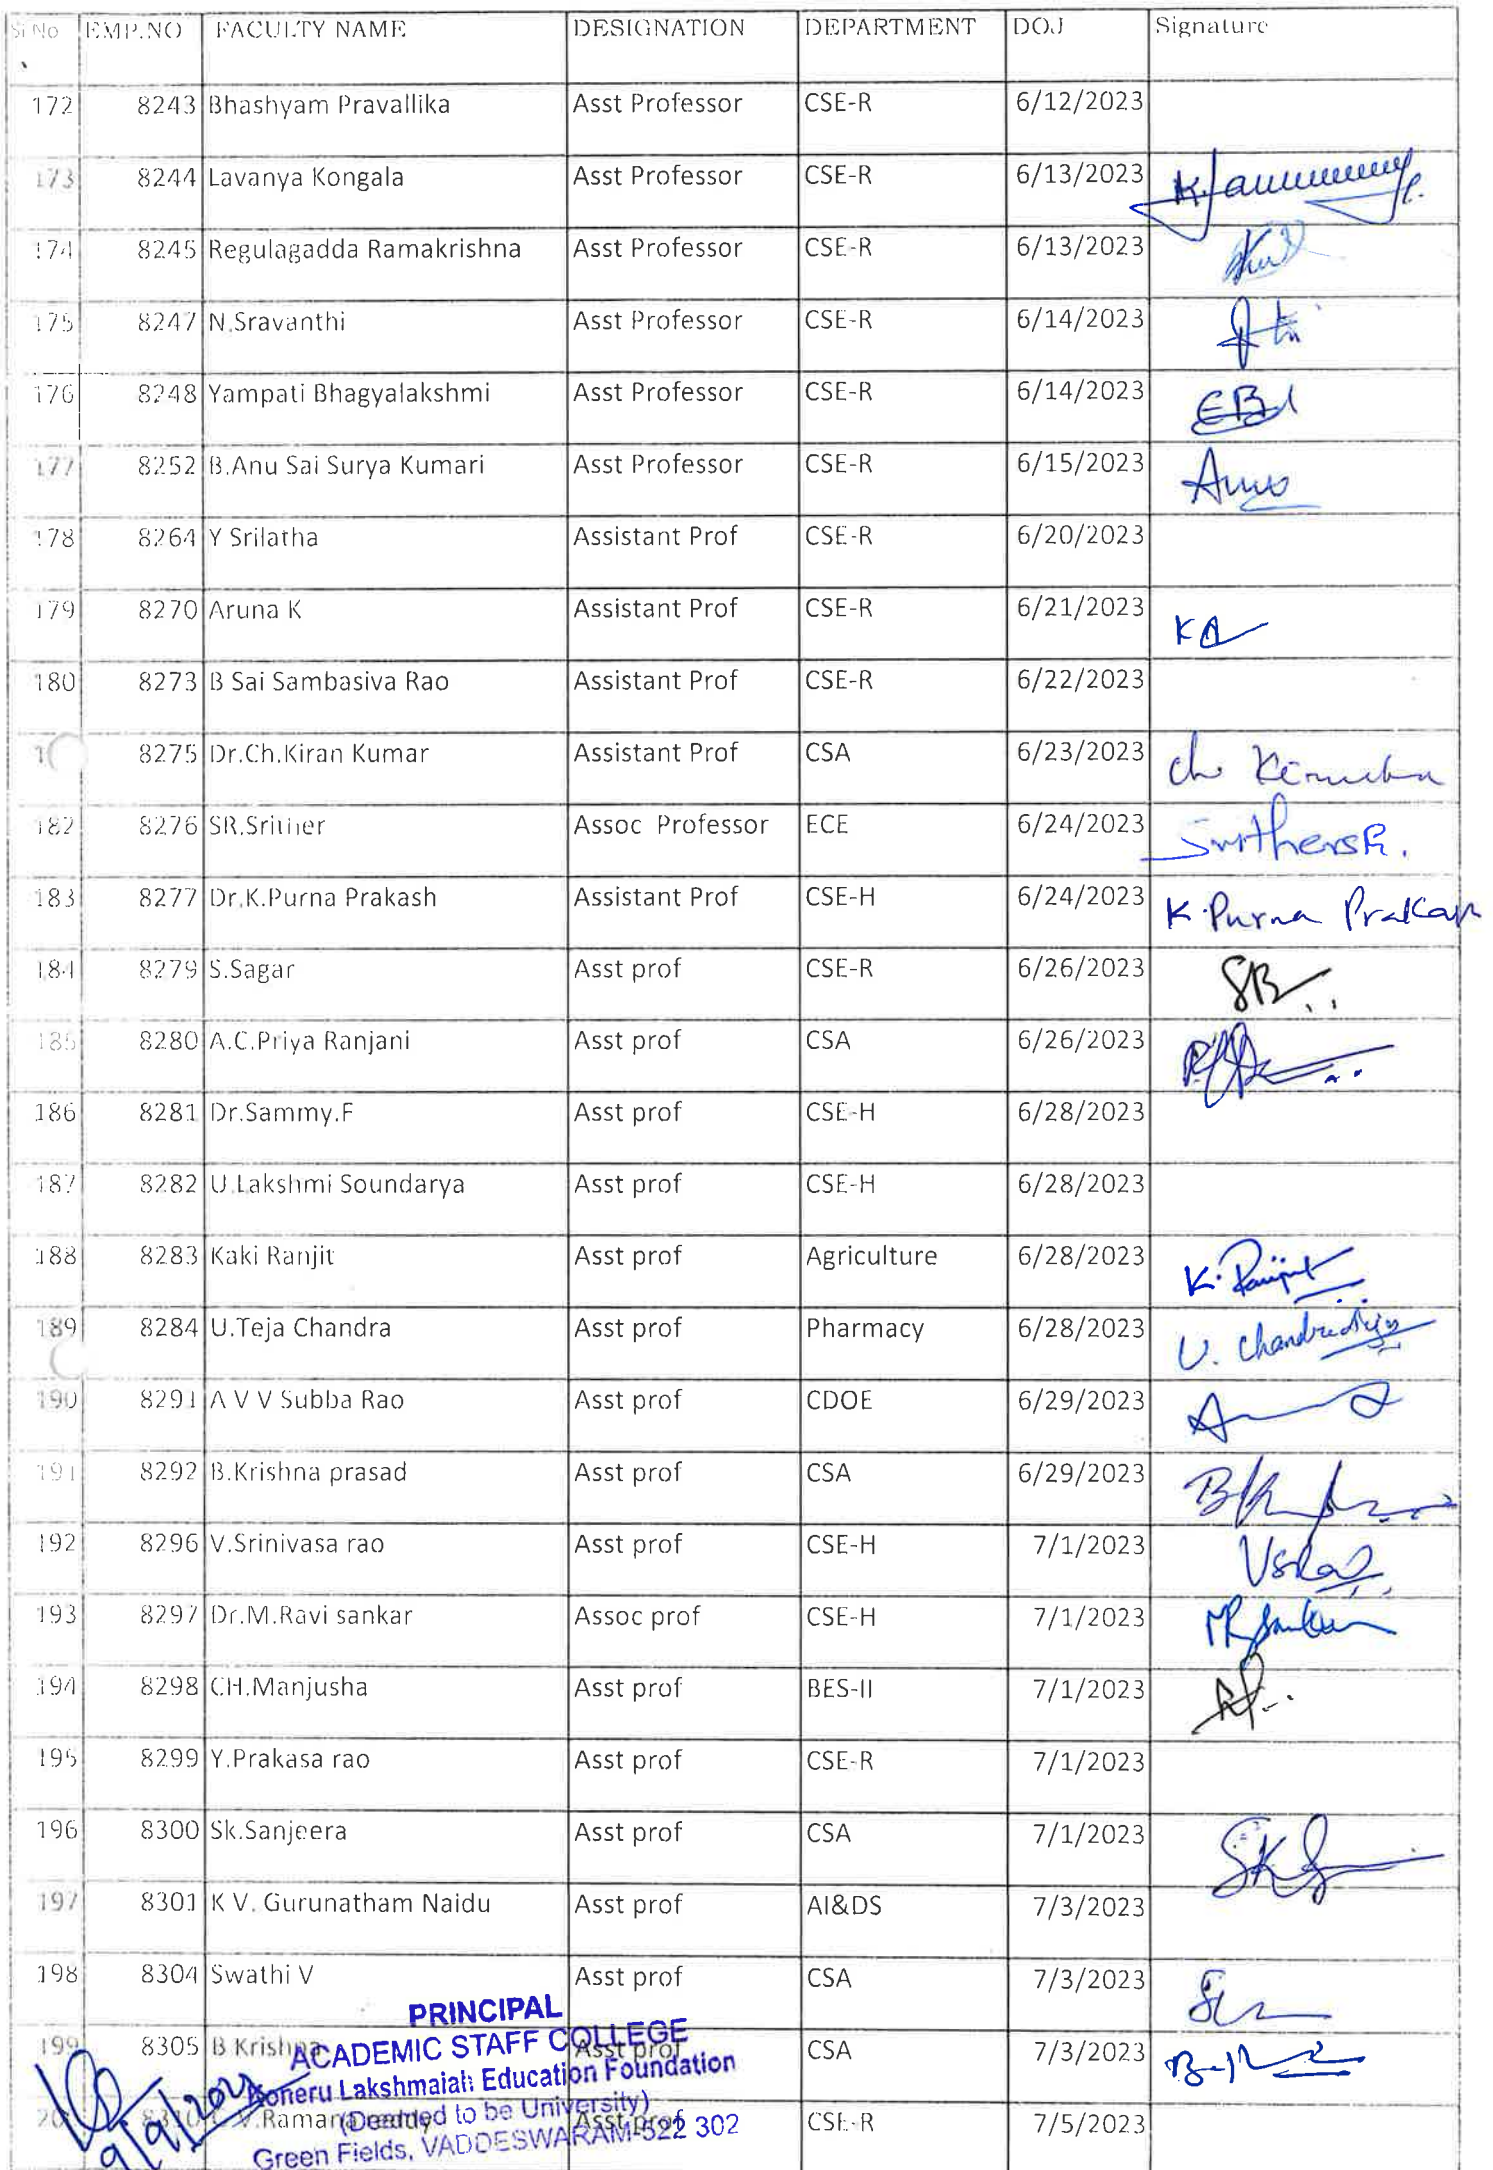 Sl No EMP.NO FACULTY NAME DESIGNATION DEPARTMENT DOJ Signature
172 8243 Bhashyam Pravallika Asst Professor CSE-R 6/12/2023
173 8244 Lavanya Kongala Asst Professor CSE-R 6/13/2023
174 8245 Regulagadda Ramakrishna Asst Professor CSE-R 6/13/2023
175 8247 N.Sravanthi Asst Professor CSE-R 6/14/2023
176 8248 Yampati Bhagyalakshmi Asst Professor CSE-R 6/14/2023
177 8252 B.Anu Sai Surya Kumari Asst Professor CSE-R 6/15/2023
178 8264 Y Srilatha Assistant Prof CSE-R 6/20/2023
179 8270 Aruna K Assistant Prof CSE-R 6/21/2023 KA
180 8273 B Sai Sambasiva Rao Assistant Prof CSE-R 6/22/2023
8275 Dr.Ch.Kiran Kumar Assistant Prof CSA 6/23/2023
182 8276 SR.Srither Assoc Professor ECE 6/24/2023
183 8277 Dr.K.Purna Prakash Assistant Prof CSE-H 6/24/2023 K.Purna Prakash
184 8279 S.Sagar Asst prof CSE-R 6/26/2023
185 8280 A.C.Priya Ranjani Asst prof CSA 6/26/2023
186 8281 Dr.Sammy.F Asst prof CSE-H 6/28/2023
187 8282 U.Lakshmi Soundarya Asst prof CSE-H 6/28/2023
188 8283 Kaki Ranjit Asst prof Agriculture 6/28/2023 K. Ranjit
189 8284 U.Teja Chandra Asst prof Pharmacy 6/28/2023
190 8291 A V V Subba Rao Asst prof CDOE 6/29/2023
191 8292 B.Krishna prasad Asst prof CSA 6/29/2023
192 8296 V.Srinivasa rao Asst prof CSE-H 7/1/2023
193 8297 Dr.M.Ravi sankar Assoc prof CSE-H 7/1/2023
194 8298 CH.Manjusha Asst prof BES-II 7/1/2023
195 8299 Y.Prakasa rao Asst prof CSE-R 7/1/2023
196 8300 Sk.Sanjeera Asst prof CSA 7/1/2023
197 8301 K V. Gurunatham Naidu Asst prof AI&DS 7/3/2023
198 8304 Swathi V Asst prof CSA 7/3/2023
PRINCIPAL
199 8305 B Krishna Asst prof CSA 7/3/2023
ACADEMIC STAFF COLLEGE
Koneru Lakshmaiah Education Foundation
V.Ramana reddy Asst prof CSE-R 7/5/2023
(Deemed to be University)
Green Fields, VADDESWARAM-522 302